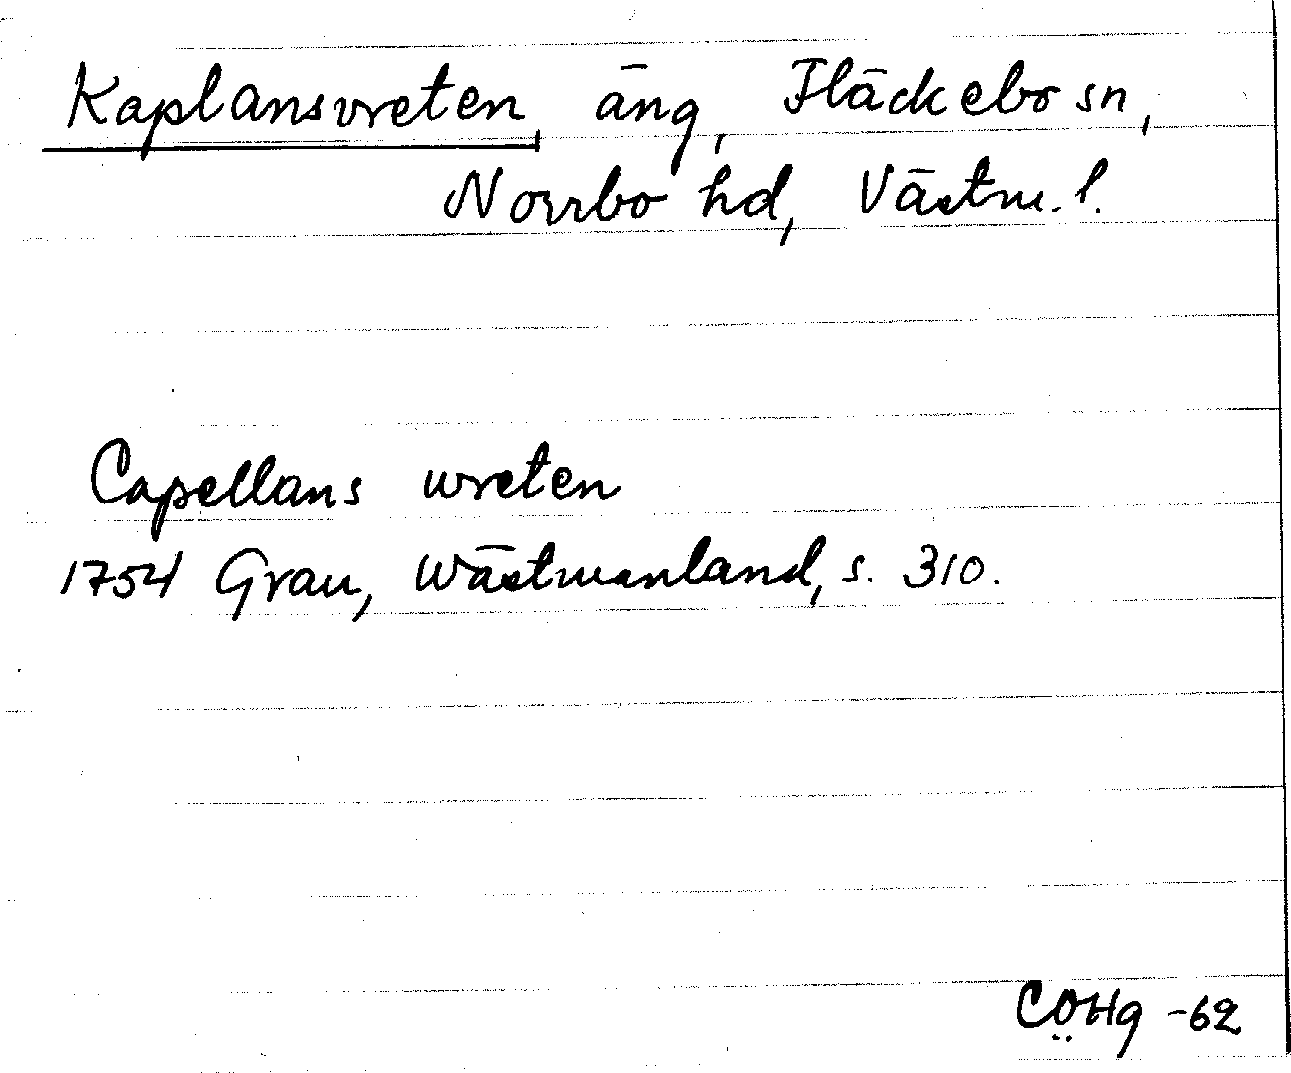 Kaplansvreten, äng, Fläckebo sn,
Norrbo hd, Västm. l.
Capellans wreten
1754 Grau, Wästmanland, s. 310.
CÖHg -62